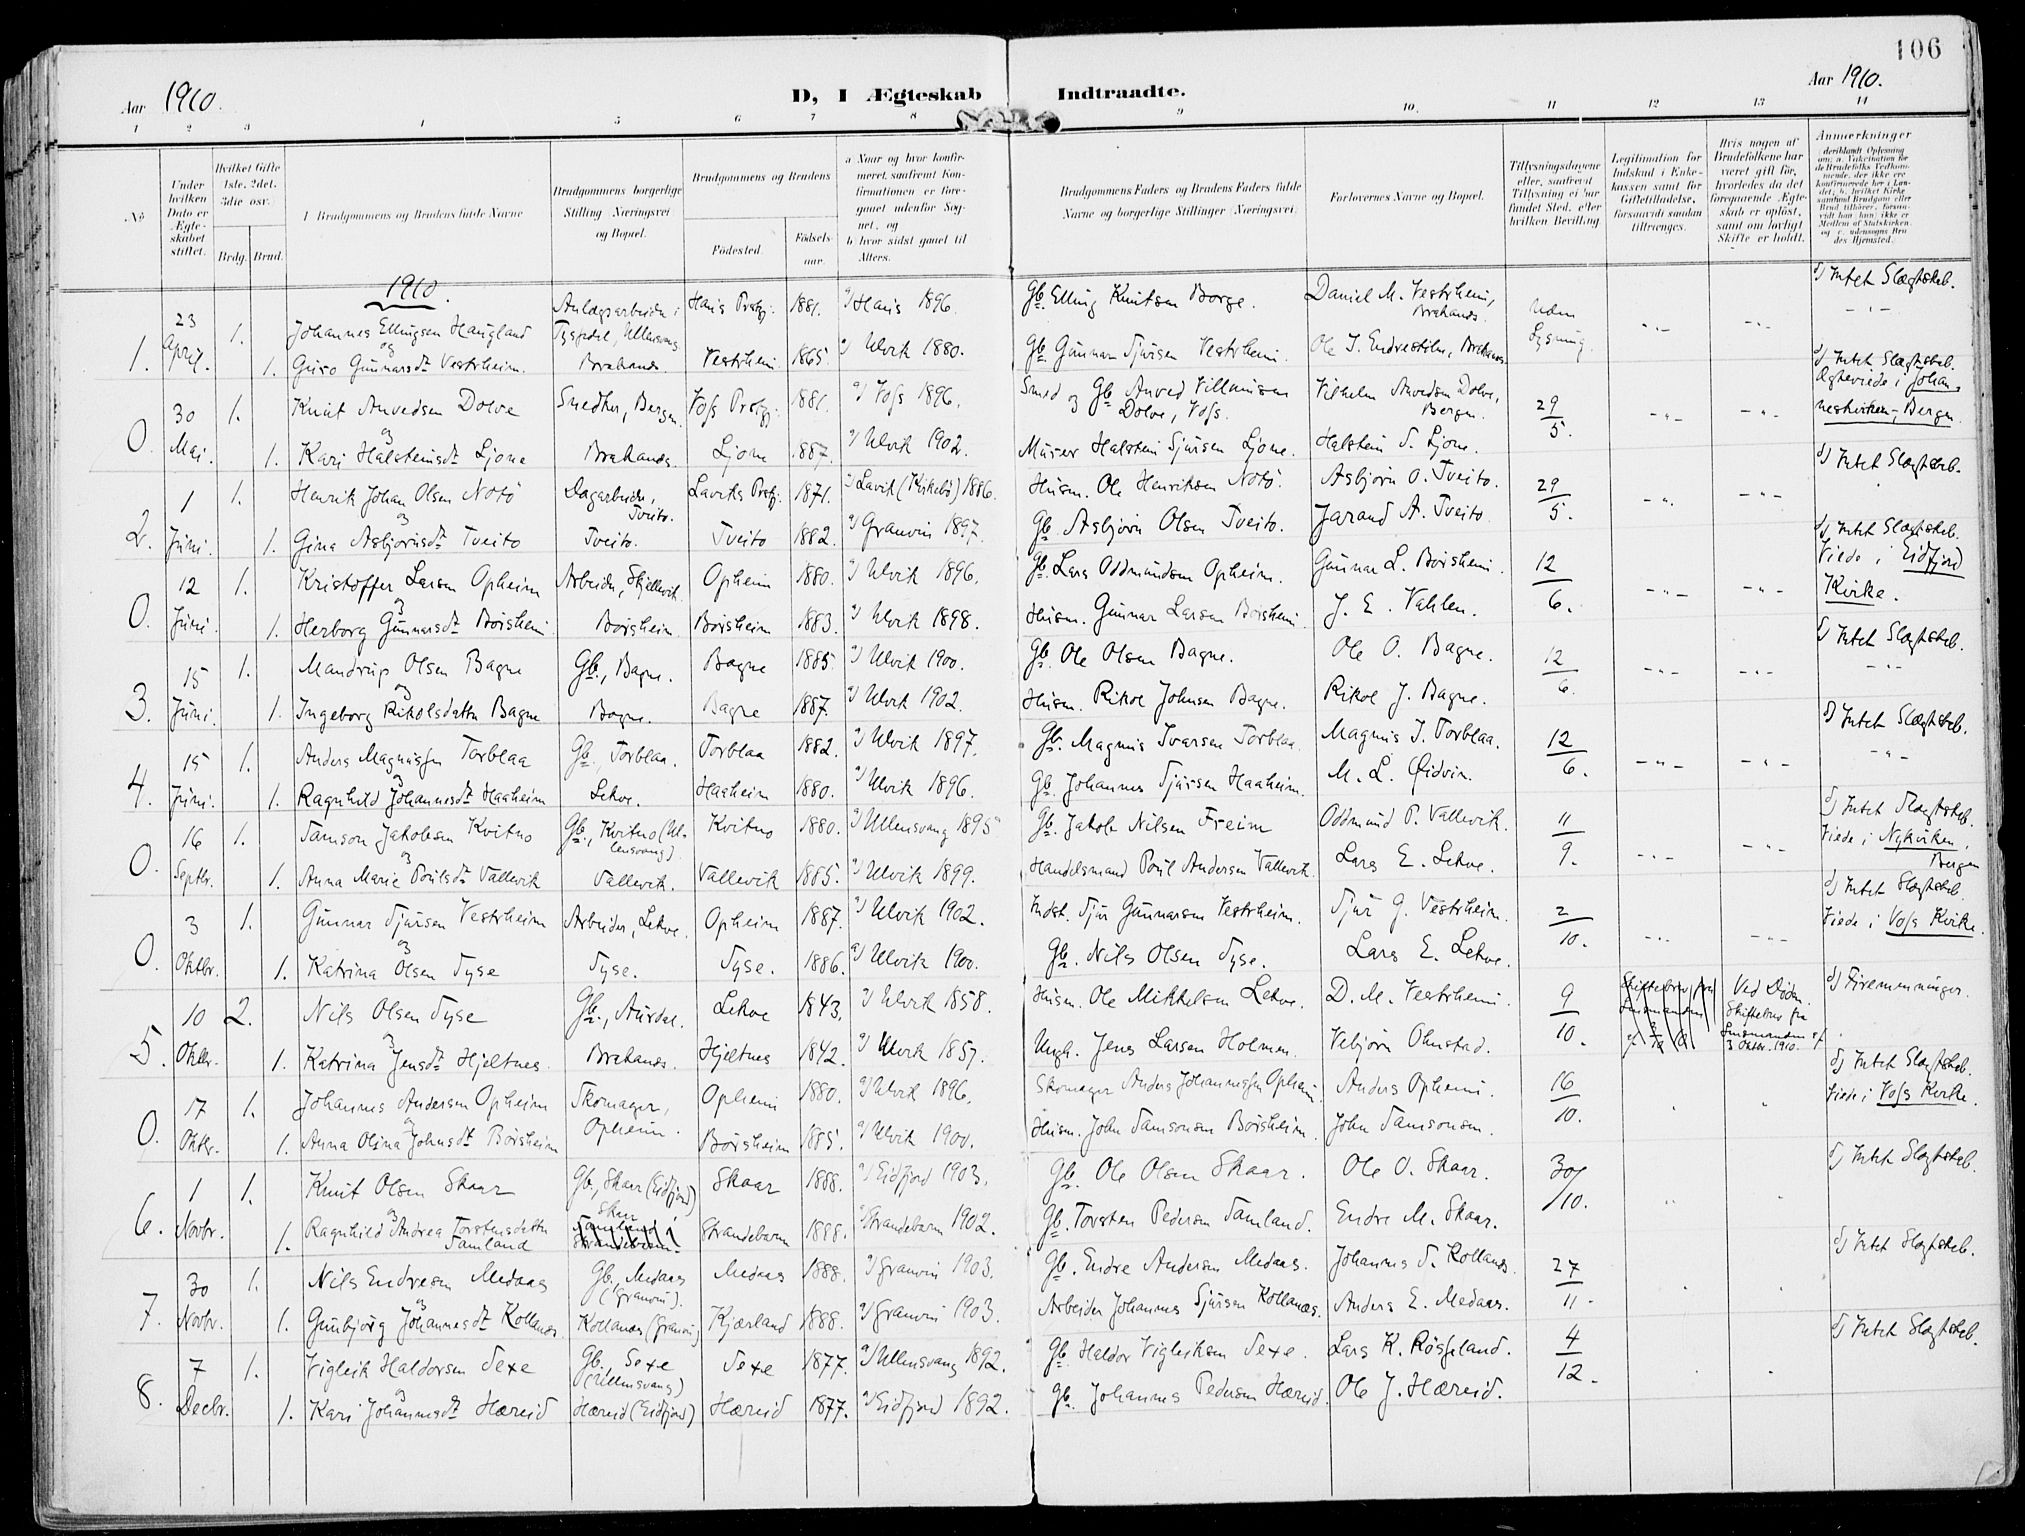 106
Aar 1910.
D, I Ægteskab Indtraadte.
Aar 1910.
1 2 3 4 5 6 7 8 9 10. 11 12 13 14
No
Under hvilken Dato er Ægteskabet stiftet.
Hvilket Gifte 1ste, 2det, 3die osv.
Brdg. Brud.
Brudgommens og Brudens fulde Navne
Brudgommens borgerlige Stilling Næringsvei og Bopæl.
Brudgommens og Brudens
Fødested.
Fødsels aar.
a Naar og hvor konfirmeret, saafremt Konfirmationen er foregaaet udenfor Sognet, og
b hvor sidst gaaet til Alters.
Brudgommens Faders og Brudens Faders fulde Navne og borgerlige Stillinger (Næringsvei)
Forlovernes Navne og Bopæl.
Tillysningsdagene eller, saafremt Tillysning ei har fundet Sted, efter hvilken Bevilling
Legitimation for Indskud i Enkekassen samt for Giftetilladelse, forsaavidt saadan tiltrænges.
Hvis nogen af Brudefolkene har været gift før, hvorledes da det foregaaende Ægteskab er opløst, samt om lovligt Skifte er holdt.
Anmærkninger
1910.
1. 23 April. 1. Johannes Ellingsen Haugland Anlægsarbeider i Tyssedal, Ullensvang Haus Prstgj. 1881. a) Haus 1896. Gb. Elling Knutsen Borge. Daniel M. Vestrheim, Brakanes. Uden Lysning. d) Intet Slægtskab.
og
1. Guro Gunnarsdt Vestrheim. Brakanes. Vestrheim 1865. a) Ulvik 1880. Gb. Gunnar Sjursen Vestrheim. Ole J. Endrestølen, Brakanes
0. 30 Mai. 1. Knut Anvedsen Dolve Snedker, Bergen. Voss Prstgj. 1881. a) Voss 1896. Smed og Gb. Anved Villumsen Dolve, Voss. Vilhelm Anvedsen Dolve, Bergen. 29/5. d) Intet Slægtskab. Ægteviede i Johanneskirken, Bergen
og
1. Kari Halsteinsdt Ljone Brakanes. Ljone 1887. a) Ulvik 1902. Murer Halstein Sjursen Ljone. Halstein S. Ljone.
2. 1 Juni. 1. Henrik Johan Olsen Notø Dagarbeider, Tveito. Laviks Prstgj. 1871. a) Lavik (Kirkebø) 1886. Husm. Ole Henriksen Notø. Asbjørn O. Tveito. 29/5. d) Intet Slægtskab.
og
1. Gina Asbjørnsdt Tveito Tveito. Tveito 1882. a) Granvin 1897. Gb. Asbjørn Olsen Tveito. Jarand A. Tveito.
0. 12 Juni. 1. Kristoffer Larsen Opheim Arbeider, Skjellevik. Opheim 1880. a) Ulvik 1896. Gb. Lars Oddmundsen Opheim. Gunnar L. Børsheim. 12/6. d) Intet Slægtskab. Viede i Eidfjord Kirke.
og
1. Herborg Gunnarsdt Børsheim Børsheim. Børsheim 1883. a) Ulvik 1898. Husm. Gunnar Larsen Børsheim. J. E. Vahlen.
3. 15 Juni. 1. Mandrup Olsen Bagne Gb., Bagne. Bagne 1885. a) Ulvik 1900. Gb. Ole Olsen Bagne. Ole O. Bagne. 12/6. d) Intet Slægtskab.
og
1. Ingeborg Rikolsdatter Bagne Bagne. Bagne 1887. a) Ulvik 1902. Husm. Rikol Johnsen Bagne. Rikol J. Bagne.
4. 15 Juni. 1. Anders Magnussen Torblaa Gb., Torblaa. Torblaa 1882. a) Ulvik 1897. Gb. Magnus Ivarsen Torblaa. Magnus I. Torblaa. 12/6. d) Intet Slægtskab.
og
1. Ragnhild Johannesdt Haaheim Lekve. Haaheim 1880. a) Ulvik 1896. Gb. Johannes Sjursen Haaheim. M. L. Øidvin.
0. 16 Septbr. 1. Samson Jakobsen Kvitno Gb., Kvitno (Ullensvang). Kvitno 1880. a) Ullensvang 1895 Gb. Jakob Nilsen Freim Oddmund P. Vallevik. 11/9. d) Intet Slægtskab. Viede i Nykirken, Bergen
og
1. Anna Marie Poulsdt Vallevik Vallevik. Vallevik 1885. a) Ulvik 1899. Handelsmand Poul Andersen Vallevik. Lars E. Lekve.
0. 3 Oktbr. 1. Gunnar Sjursen Vestrheim Arbeider, Lekve. Opheim 1887. a) Ulvik 1902. Indst. Sjur Gunnarsen Vestrheim. Sjur G. Vestrheim. 2/10. d) Intet Slægtskab. Viede i Voss Kirke.
og
1. Katrina Olsen Tyse Tyse. Tyse. 1886. a) Ulvik 1900. Gb. Nils Olsen Tyse. Lars E. Lekve.
5. 10 Oktbr. 2. Nils Olsen Tyse Gb., Aurdal. Lekve 1843. a) Ulvik 1858. Husm. Ole Mikkelsen Lekve. D. M. Vestrheim. 9/10. Ved Døden. Skiftebrev fra Lensmanden af 3 Oktbr. 1910. d)
og
1. Katrina Jensdt Hjeltnes. Brakanes. Hjeltnes 1842. a) Ulvik 1857. Ungk. Jens Larsen Holmen. Vebjørn Ohnstad.
0. 17 Oktbr. 1. Johannes Andersen Opheim Skomager, Opheim. Opheim 1880. a) Ulvik 1896. Skomager Anders Johannessen Opheim. Anders Opheim. 16/10. d) Intet Slægtskab. Viede i Voss Kirke.
og
1. Anna Olina Johnsdt Børsheim Børsheim 1885. a) Ulvik 1900. Husm. John Samsonsen Børsheim. John Samsonsen.
6. 1 Novbr. 1. Knut Olsen Skaar Gb., Skaar (Eidfjord) Skaar 1888. a) Eidfjord 1903. Gb. Ole Olsen Skaar. Ole O. Skaar. 30/10. d) Intet Slægtskab.
og
1. Ragnhild Andrea Torstensdatter Samland Skaar Strandebarm 1888. a) Strandebarm 1902. Gb. Torsten Pedersen Samland. Endre M. Skaar.
7. 30 Novbr. 1. Nils Endresen Medaas Gb., Medaas (Granvin). Medaas 1888. a) Granvin 1903. Gb. Endre Andersen Medaas. Johannes S. Kollanes. 27/11. d) Intet Slægtskab.
og
1. Gunbjørg Johannesdt Kollanes. Kollanes (Granvin) Kjærland 1888. a) Granvin 1903. Arbeider Johannes Sjursen Kollanes. Anders E. Medaas.
8. 7 Decbr. 1. Vigleik Haldorsen Sexe Gb., Sexe (Ullensvang) Sexe 1877. a) Ullensvang 1892. Gb. Haldor Vigleiksen Sexe. Lars K. Røsseland. 4/12. d) Intet Slægtskab.
og
1. Kari Johannesdt Hæreid Hæreid (Eidfjord) Hæreid 1877. a) Eidfjord 1892. Gb. Johannes Pedersen Hæreid. Ole J. Hæreid.